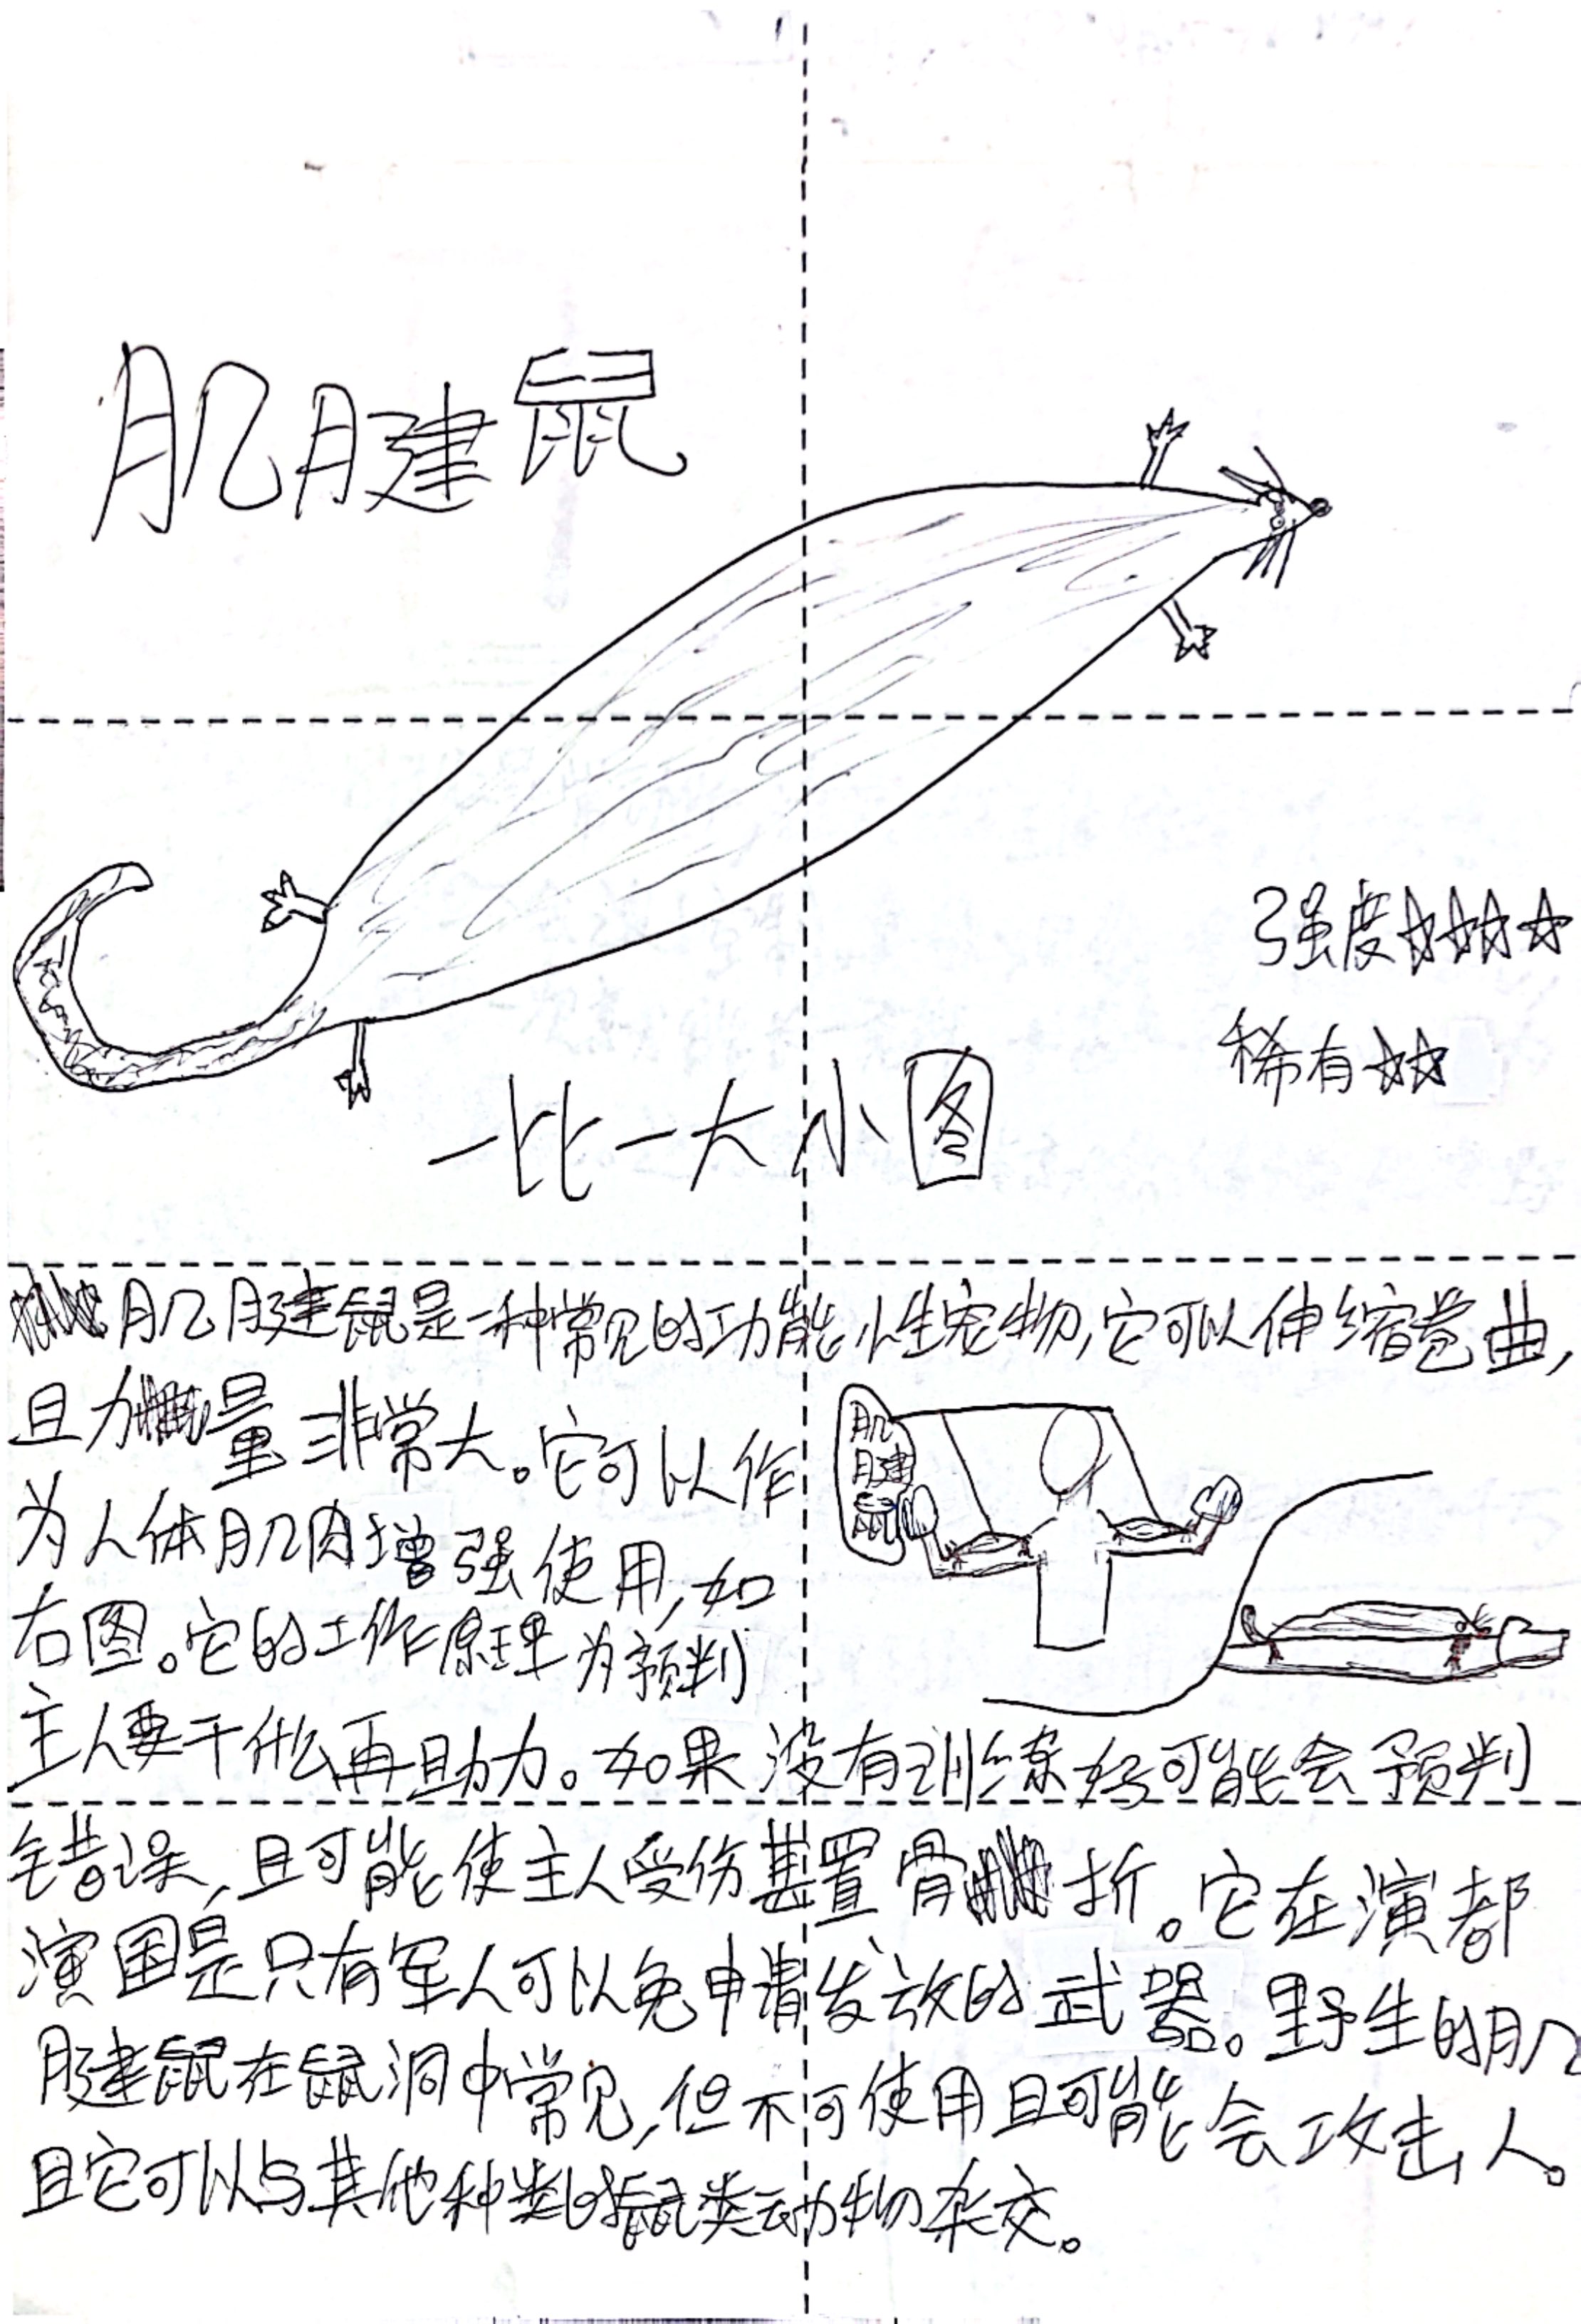 肌腱鼠
强度☆☆☆☆
稀有☆☆
一比一大小图
肌腱鼠是一种常见的功能性宠物,它可以伸缩卷曲,
且力量非常大。它可以作
为人体肌肉增强使用,如
右图。它的工作原理为预判
肌
腱
鼠
主人要干什么再助力。如果没有训练好可能会预判
错误,且可能使主人受伤甚置骨折。它在演都
演国是只有军人可以免申请发放的武器。野生的肌
腱鼠在鼠洞中常见,但不可使用且可能会攻击人。
且它可以与其他种类的鼠类动物杂交。